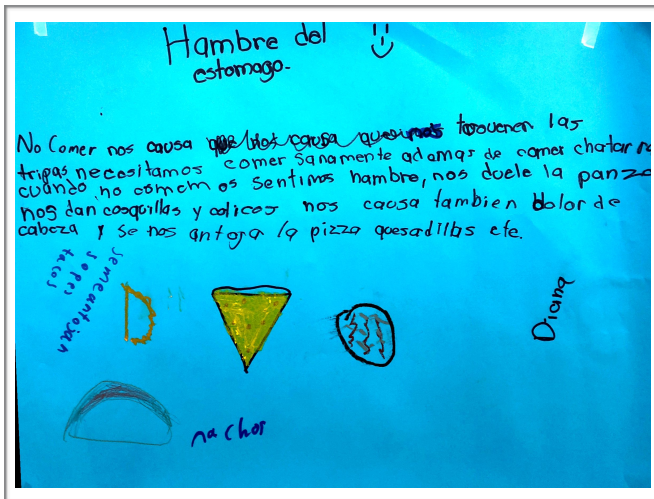 Hambre del
estomago.
No Comer nos causa que nos causa que nos truenen las
tripas necesitamos comer sanamente ademas de comer chatarra
cuando no comemos sentimos hambre, nos duele la panza
nos dan cosquillas y colicos nos causa tambien dolor de
cabeza y se nos antoja la pizza quesadillas etc.
se me antojan
sopes
tacos
Diana
nachos